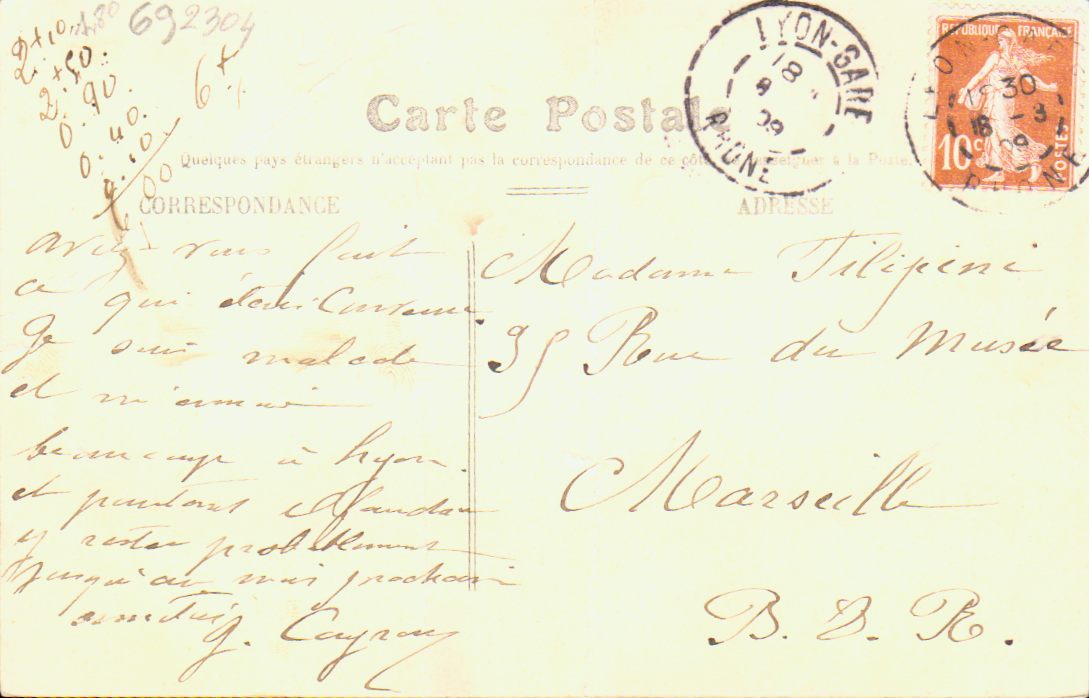 692304
2 + 10
2 + 50
0. 90
0. 40
6 +
Carte Postale
Quelques pays étrangers n'acceptant pas la correspondance de ce côté, se renseigner à la Poste.
CORRESPONDANCE
ADRESSE
LYON-GARE
18
09
RHONE
REPUBLIQUE FRANÇAISE
10c
POSTES
1830
18 - 3
09
RHONE
avez-vous fait
ce qui était convenu.
Je suis malade
et m'ennuie
beaucoup à Lyon.
et pourtant il faudra
y rester probablement
jusqu'au mois prochain
amitiés
G. Cayrou
Madame Filipini
35 Rue du Musée
Marseille
B. D. R.